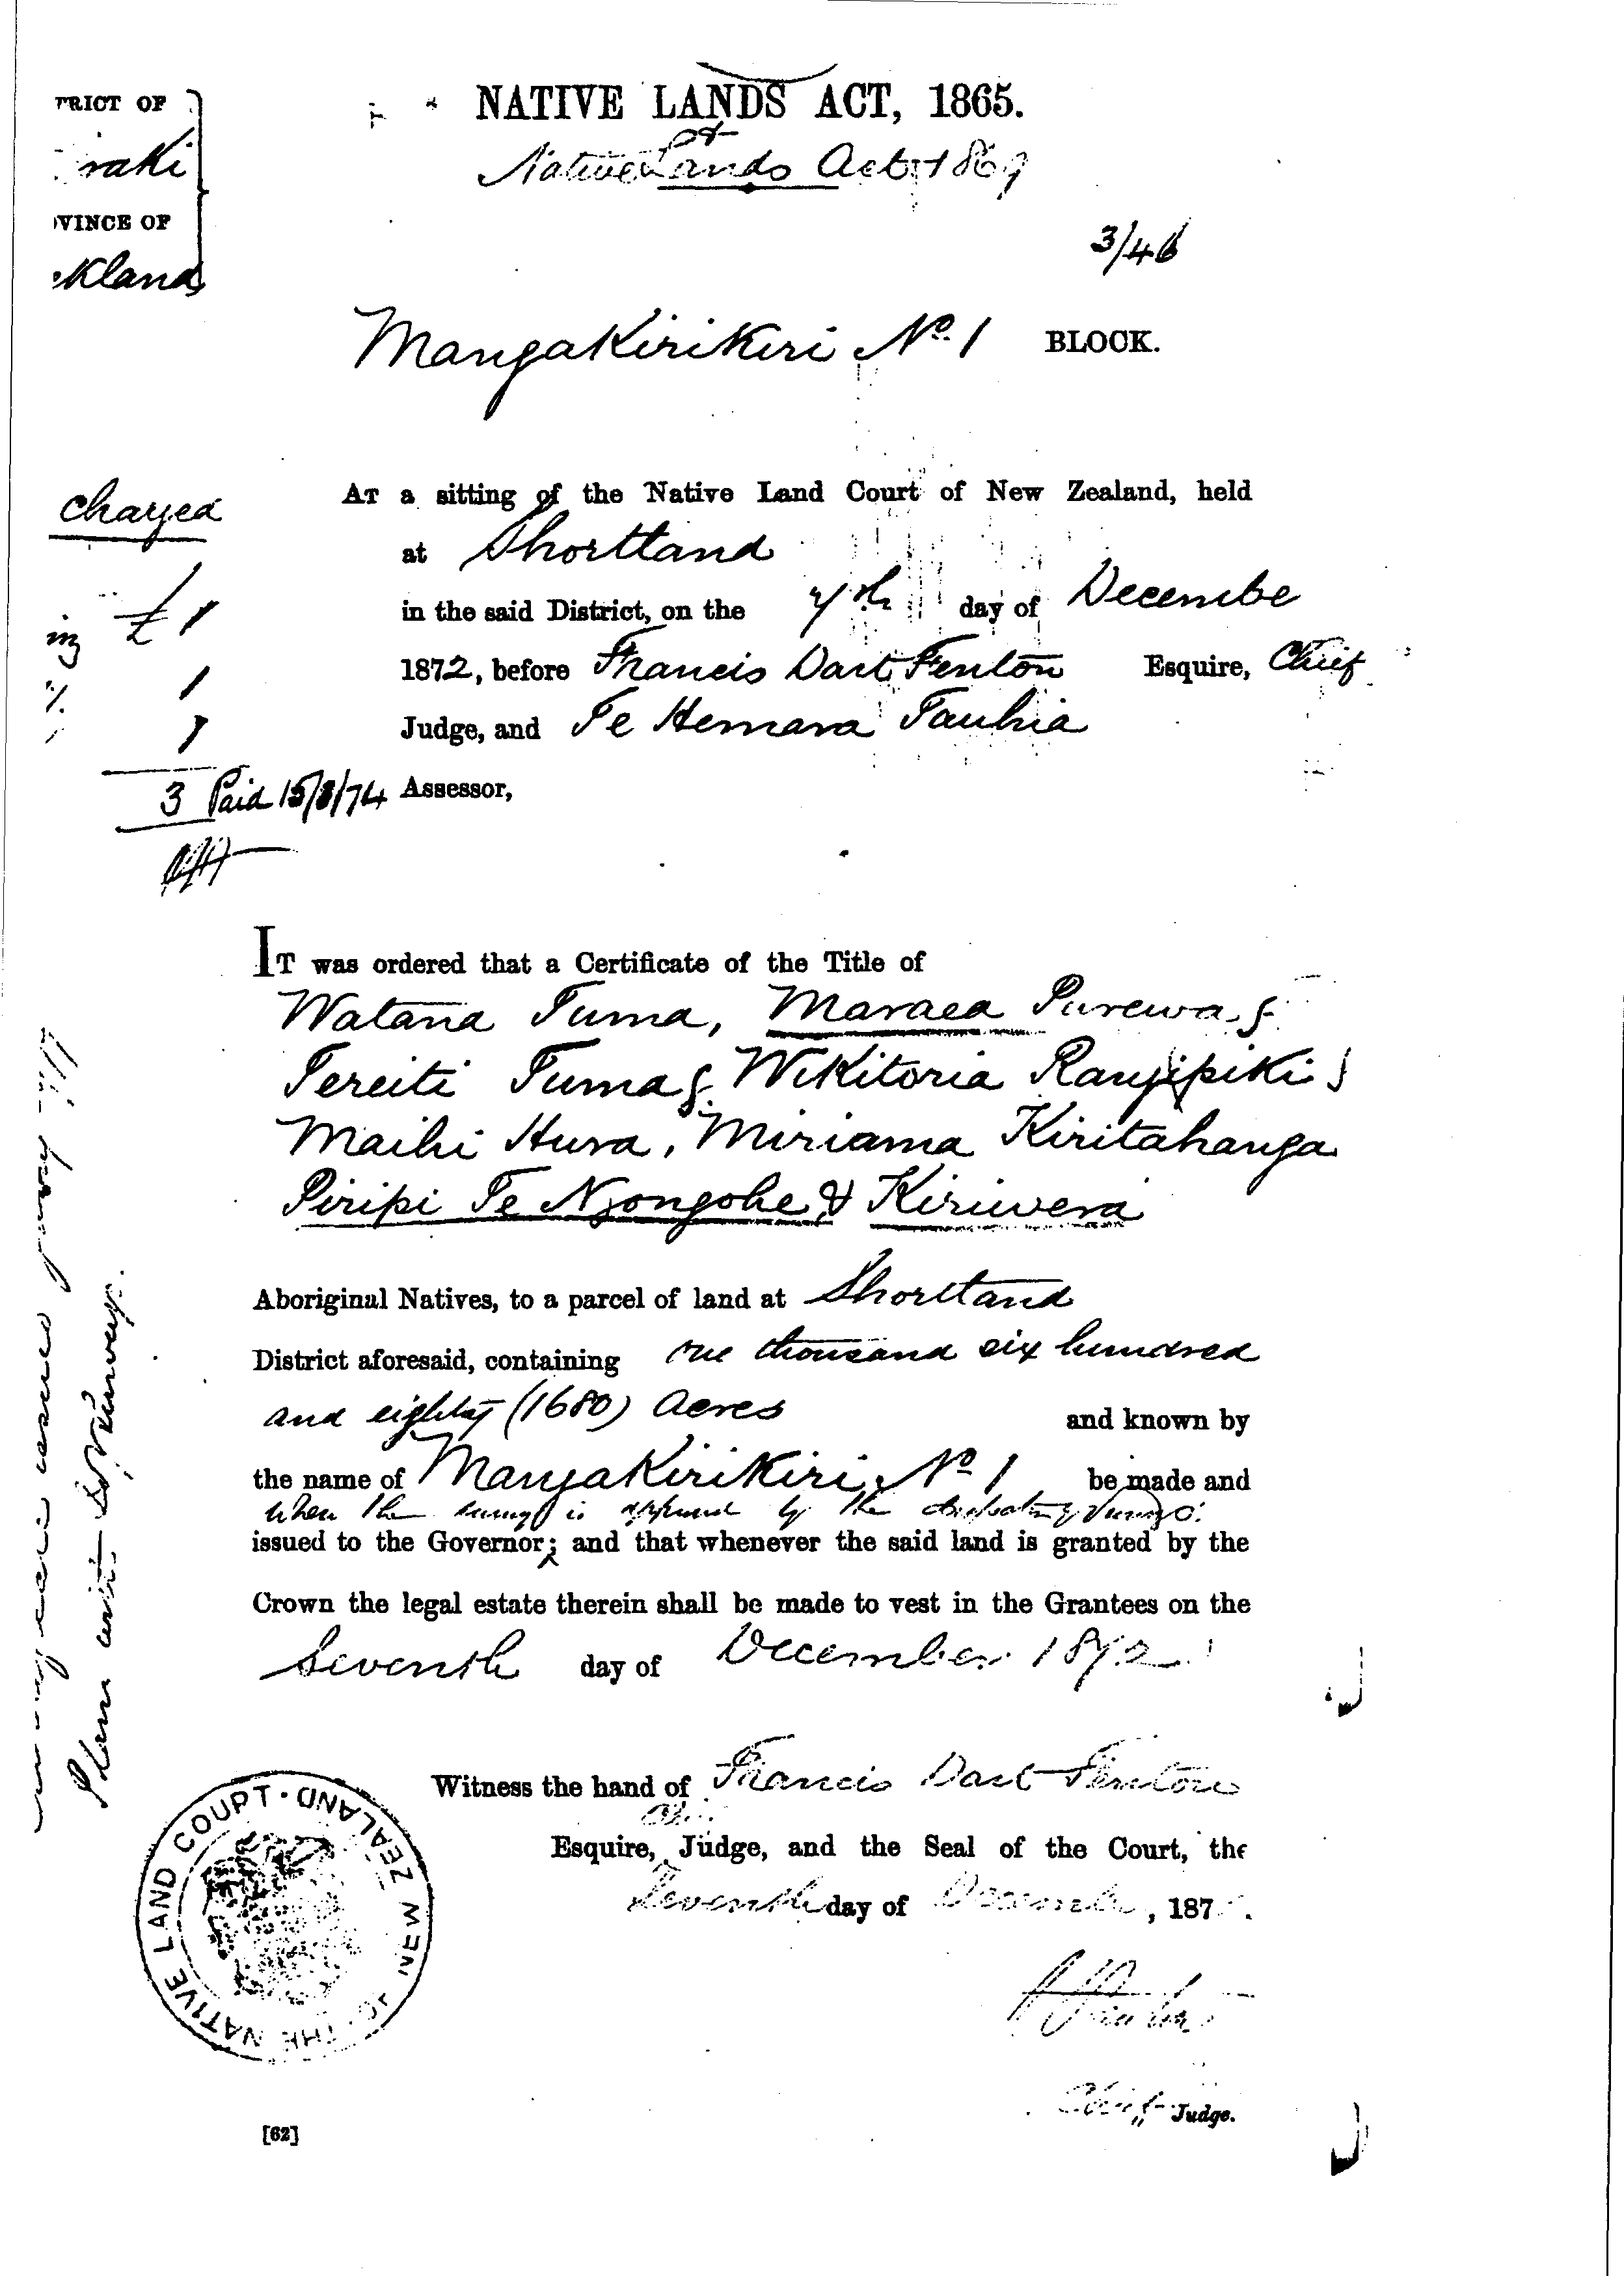 NATIVE LANDS ACT, 1865.
&
Native Lands Act 1869
TRICT OF
raki
VINCE OF
kland
3/46
Mangakirikiri No. 1 BLOCK.
At a sitting of the Native Land Court of New Zealand, held
at Shortland
in the said District, on the 7th day of Decembe
1872, before Francis Dart Fenton Esquire, Chief
Judge, and Te Hemara Tauhia
Assessor,
Charged
£ 1
1
1
3 Paid 15/8/74
It was ordered that a Certificate of the Title of
Watana Tuma, Maraea Purewa f
Tereiti Tuma f. Wikitoria Rangipiki f
Maihi Hura, Miriama Kiritahanga
Piripi Te Ngongohe & Kiriwera
Aboriginal Natives, to a parcel of land at Shortland
District aforesaid, containing one thousand six hundred
and eighty (1680) Acres and known by
the name of Mangakirikiri No 1 be made and
when the survey is approved by the
issued to the Governor; and that whenever the said land is granted by the
Crown the legal estate therein shall be made to vest in the Grantees on the
Seventh day of December 1872
Plan with
Witness the hand of Francis Dart Fenton
Esquire, Judge, and the Seal of the Court, the
Seventh day of December, 187
THE NATIVE LAND COURT · OF NEW ZEALAND ·
Chief Judge.
[62]